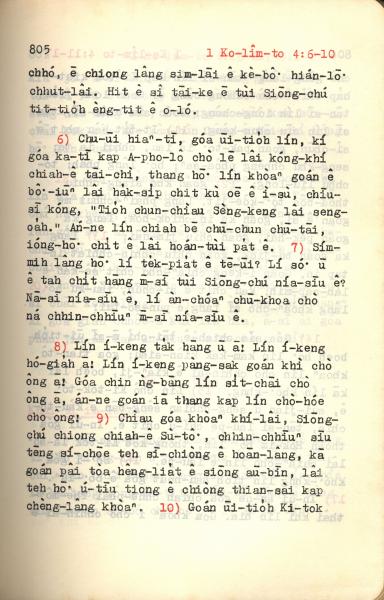 805
1 Ko-lîm-to 4:6-10
chhó, ē chiong lâng sim-lāi ê kè-bô͘ hián-lō͘
chhut-lâi. Hit ê sî tāi-ke ē tùi Siōng-chú
tit-tio̍h èng-tit ê o-ló.
6) Chu-ūi hiaⁿ-tī, góa ūi-tio̍h lín, kí
góa ka-tī kap A-pho-lô chò lē lâi kóng-khí
chiah-ê tāi-chì, thang hō͘ lín khòaⁿ goán ê
bô͘-iūⁿ lâi ha̍k-si̍p chit kù oē ê ì-sù, chiū-
sī kóng, "Tio̍h chun-chiàu Sèng-keng lâi seng-
oa̍h." Án-ne lín chiah bē chū-chun chū-tāi,
ióng-hō͘ chi̍t ê lâi hoán-tùi pa̍t ê. 7) Sím-
mih lâng hō͘ lí te̍k-pia̍t ê tē-ūi? Lí só͘ ū
ê tah chi̍t hāng m̄-sī tùi Siōng-chú nía-siū ê?
Nā-sī nía-siū ê, lí àn-chóaⁿ chū-khoa chò
ná chhin-chhiūⁿ m̄-sī nía-siū ê.
8) Lín í-keng ta̍k hāng ū a! Lín í-keng
hó-gia̍h ā! Lín í-keng pàng-sak goán khì chò
ông a! Góa chin ǹg-bāng lín si̍t-chāi chò
ông ā, án-ne goán iā thang kap lín chò-hóe
chò ông! 9) Chiàu góa khòaⁿ khí-lâi, Siōng-
chú chiong chiah-ê Sù-tô͘, chhin-chhiūⁿ siū
tēng sí-chōe teh sī-chiòng ê hoān-lâng, kā
goán pâi tòa hêng-lia̍t ê siōng āu-bīn, lâi
teh hō͘ ú-tiū tiong ê chiòng thian-sài kap
chèng-lâng khòaⁿ. 10) Goán ūi-tio̍h Ki-tok